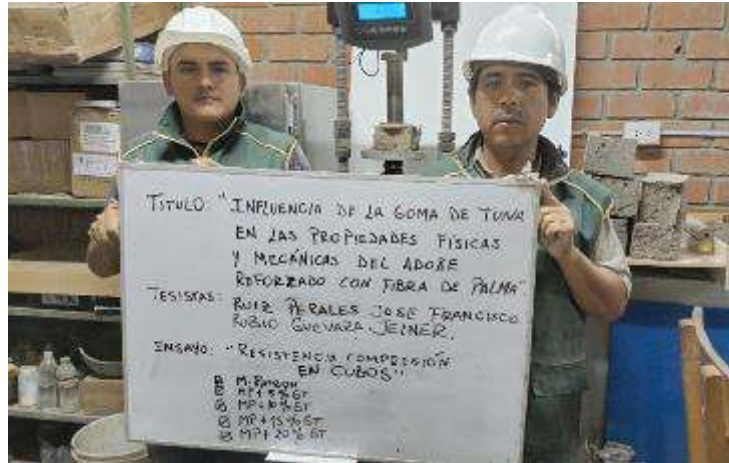 TITULO: "INFLUENCIA DE LA GOMA DE TUNA
EN LAS PROPIEDADES FÍSICAS
Y MECÁNICAS DEL ADOBE
REFORZADO CON FIBRA DE PALMA"
TESISTAS: RUIZ PERALES JOSE FRANCISCO
RUBIO GUEVARA JEINER.
ENSAYO: "RESISTENCIA COMPRESIÓN
EN CUBOS"
M. PATRON
MP + 5% GT
MP + 10% GT
MP + 15% GT
MP + 20% GT